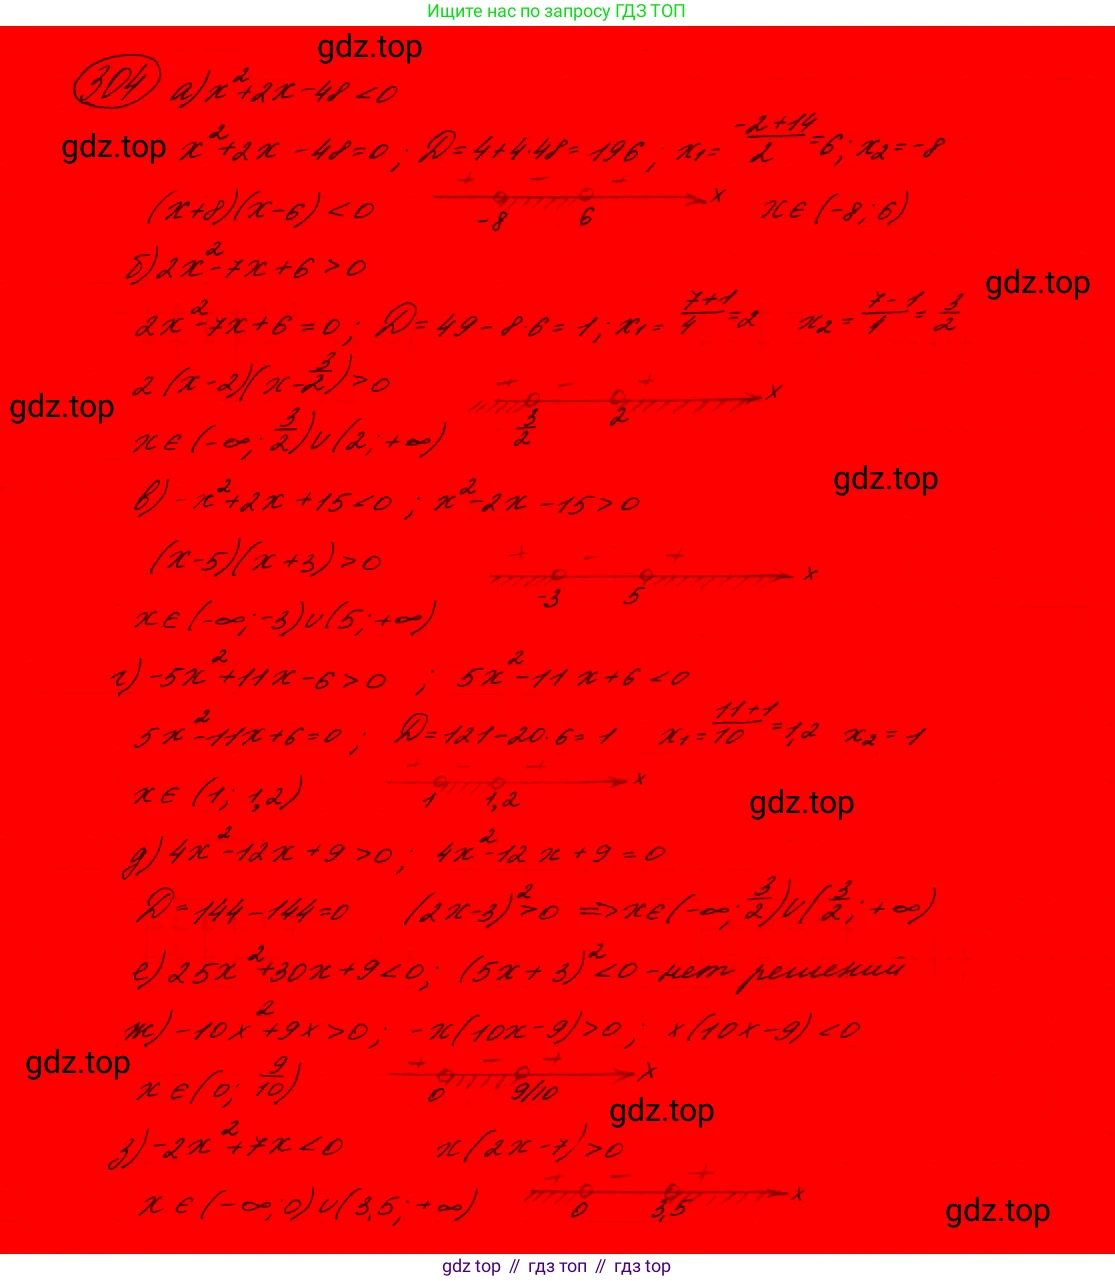 Ищите нас по запросу ГДЗ ТОП
gdz.top
304 а) x²+2x-48<0
gdz.top
x²+2x-48=0; D=4+4·48=196; x₁=(-2+14)/2=6; x₂=-8
(x+8)(x-6)<0 + - + -8 6 x x∈(-8;6)
б) 2x²-7x+6>0
gdz.top
2x²-7x+6=0; D=49-8·6=1; x₁=(7+1)/4=2 x₂=(7-1)/4=3/2
2(x-2)(x-3/2)>0 + - + 3/2 2 x
gdz.top
x∈(-∞;3/2)∪(2;+∞)
gdz.top
в) -x²+2x+15<0; x²-2x-15>0
(x-5)(x+3)>0 + - + -3 5 x
x∈(-∞;-3)∪(5;+∞)
г) -5x²+11x-6>0; 5x²-11x+6<0
5x²-11x+6=0; D=121-20·6=1 x₁=(11+1)/10=1,2 x₂=1
x∈(1;1,2) + - + 1 1,2 x
gdz.top
д) 4x²-12x+9>0; 4x²-12x+9=0
D=144-144=0 (2x-3)²>0 => x∈(-∞;3/2)∪(3/2;+∞)
е) 25x²+30x+9<0; (5x+3)²<0 - нет решений
ж) -10x²+9x>0; -x(10x-9)>0; x(10x-9)<0
gdz.top
x∈(0;9/10) + - + 0 9/10 x
gdz.top
з) -2x²+7x<0 x(2x-7)>0
x∈(-∞;0)∪(3,5;+∞) + - + 0 3,5 x
gdz.top
gdz top // гдз топ // gdz top